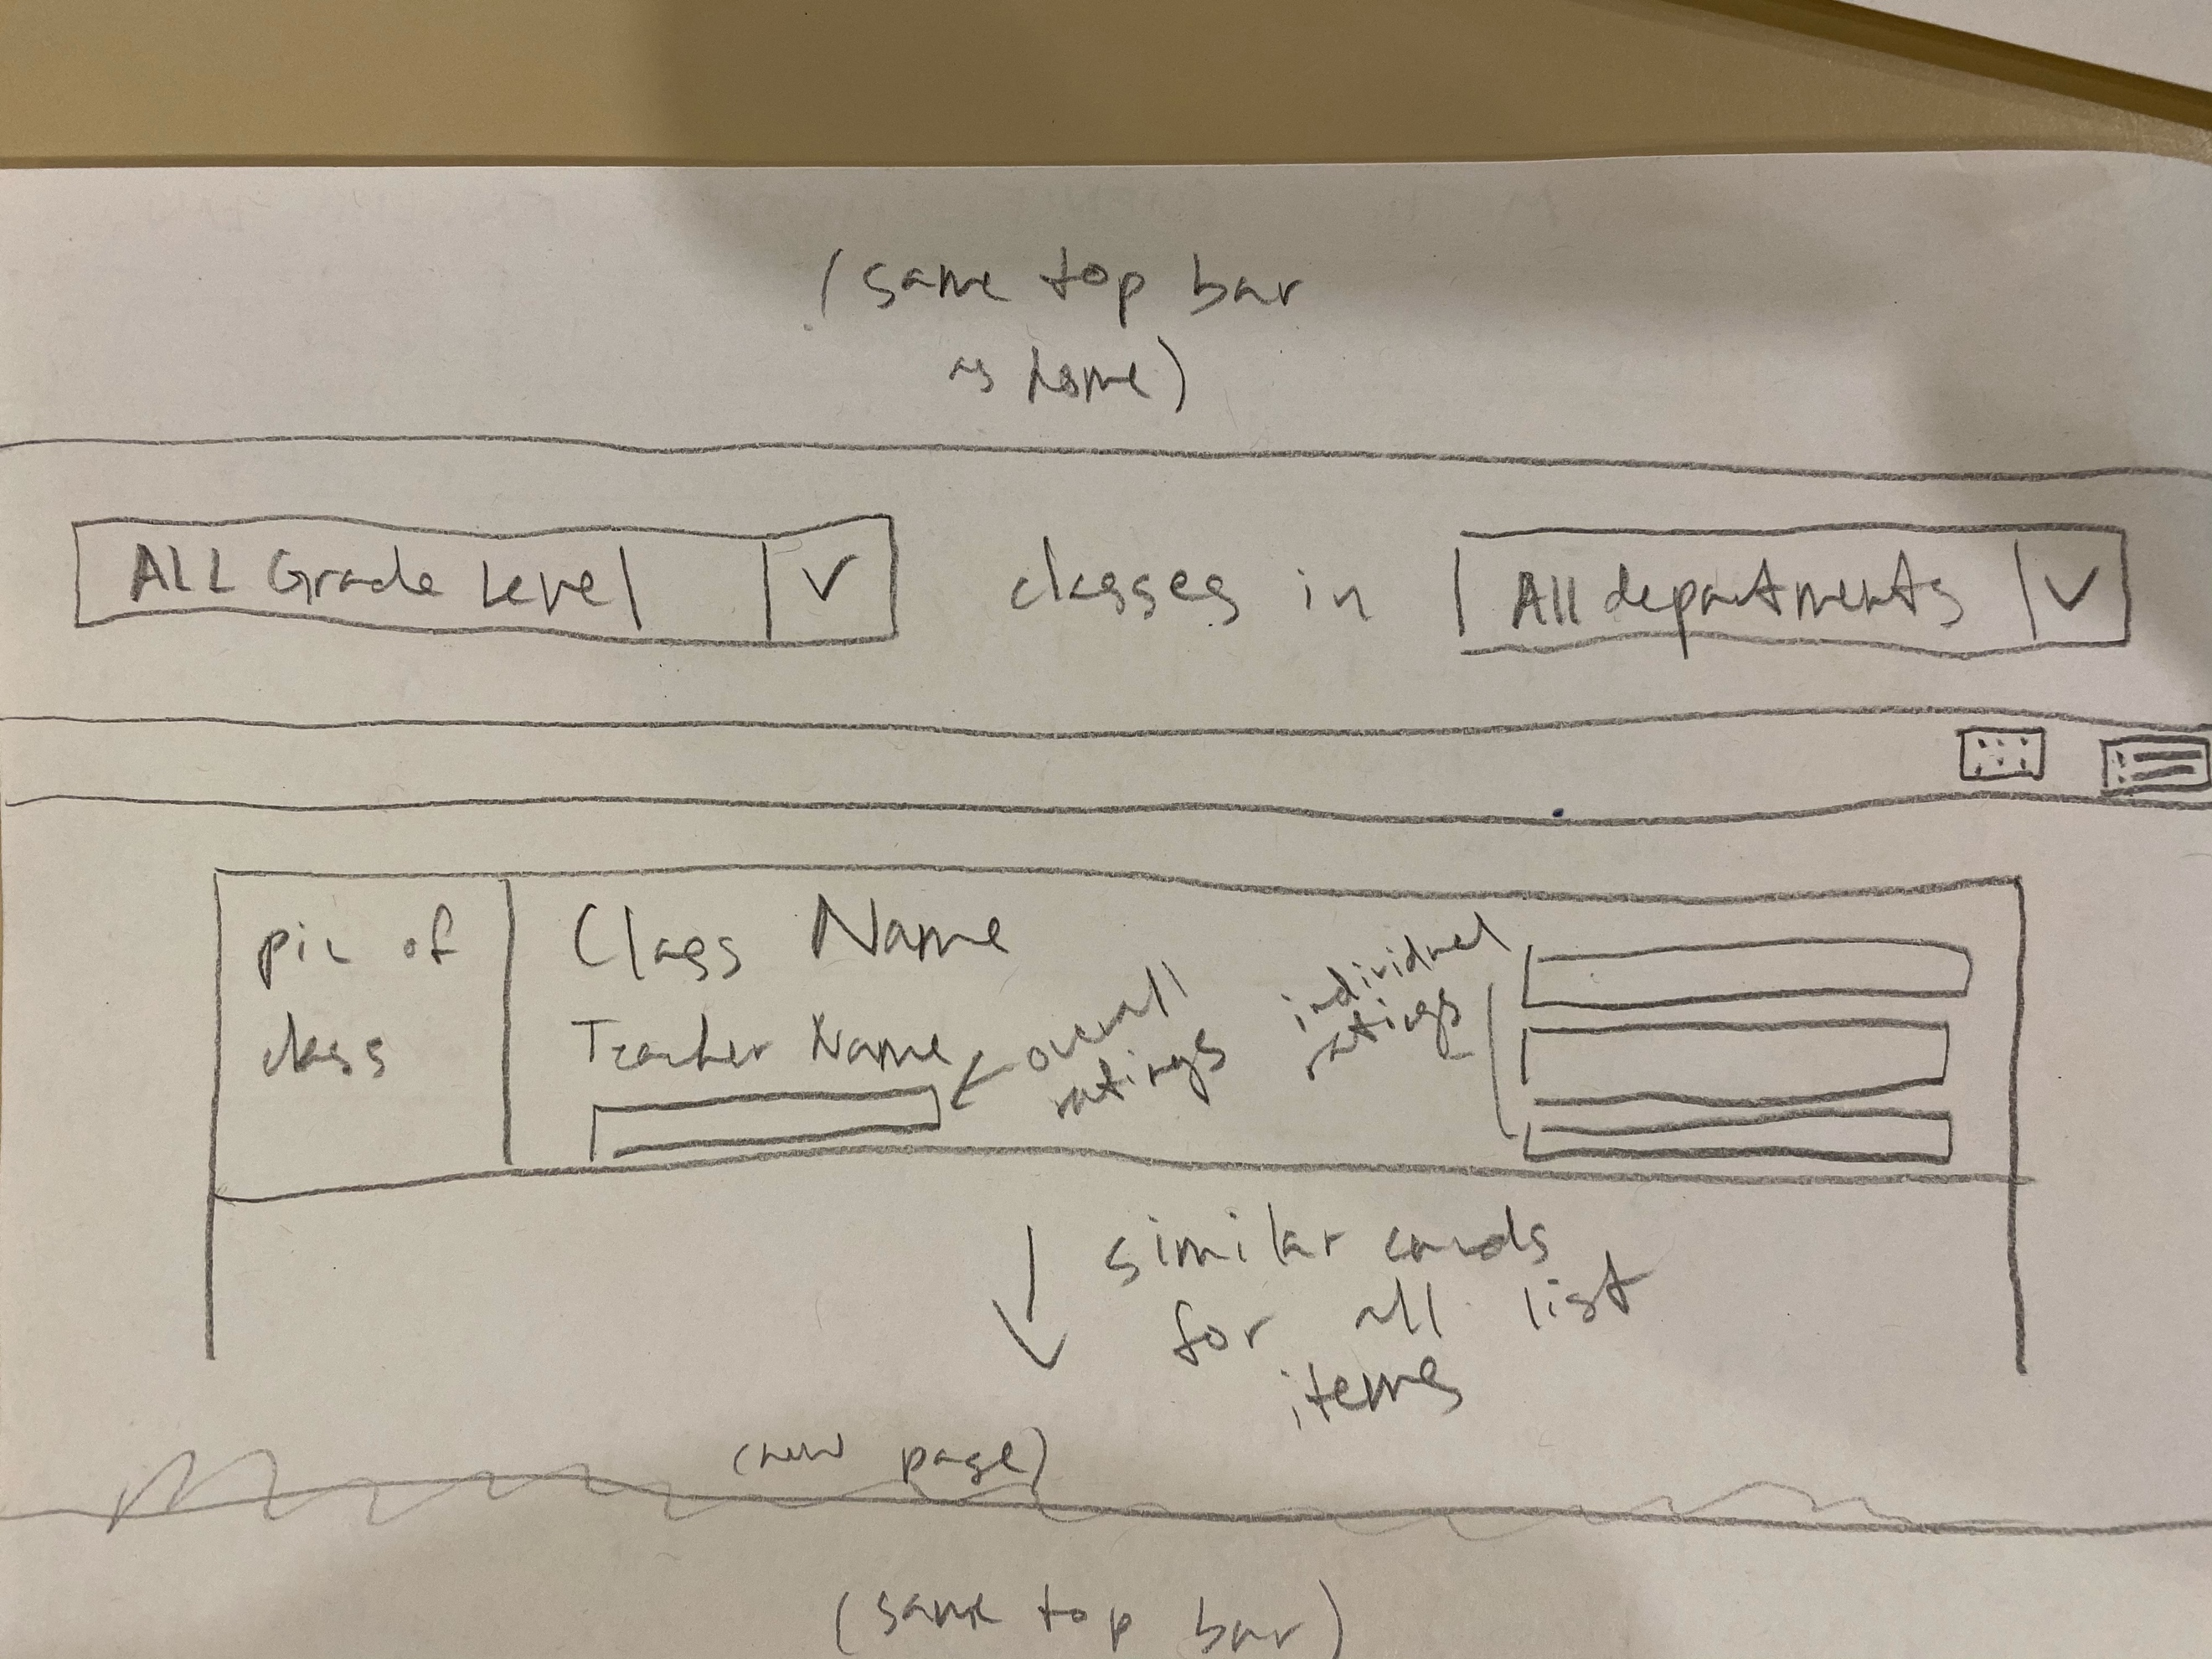 (same top bar
as home)
ALL Grade Level V classes in All departments V
pic of
class
Class Name
Teacher Name
overall
ratings
individual
ratings
similar cards
for all list
items
(new page)
(same top bar)